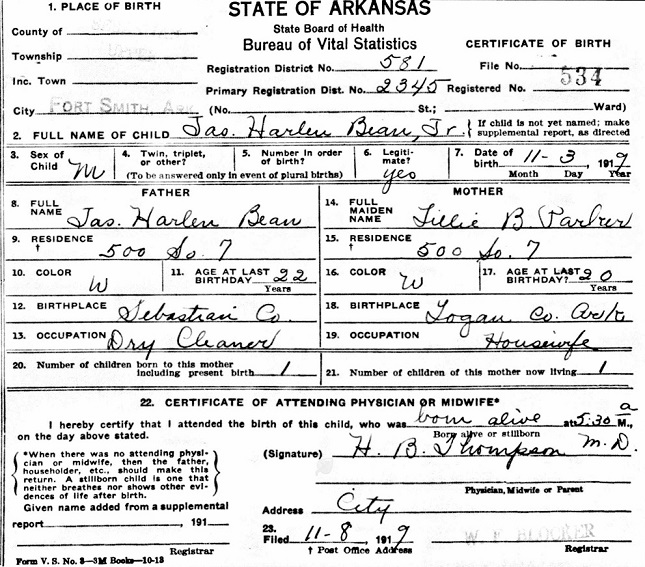 1. PLACE OF BIRTH
STATE OF ARKANSAS
State Board of Health
Bureau of Vital Statistics
CERTIFICATE OF BIRTH
County of
Township
Inc. Town
City FORT SMITH, ARK
Registration District No. 581
File No.
Primary Registration Dist. No. 2345 Registered No. 534
(No. St.; Ward)
2. FULL NAME OF CHILD Jas. Harlen Bean, Jr. { If child is not yet named; make supplemental report, as directed
3. Sex of Child M
4. Twin, triplet, or other?
5. Number in order of birth?
(To be answered only in event of plural births)
6. Legitimate? yes
7. Date of birth 11-3, 1919
Month Day Year
FATHER
8. FULL NAME Jas. Harlen Bean
9. RESIDENCE † 500 So. 7
10. COLOR W
11. AGE AT LAST BIRTHDAY 22 Years
12. BIRTHPLACE Sebastian Co.
13. OCCUPATION Dry Cleaner
MOTHER
14. FULL MAIDEN NAME Lillie B. Parker
15. RESIDENCE † 500 So. 7
16. COLOR W
17. AGE AT LAST BIRTHDAY? 20 Years
18. BIRTHPLACE Logan Co. Ark
19. OCCUPATION Housewife
20. Number of children born to this mother including present birth 1
21. Number of children of this mother now living 1
22. CERTIFICATE OF ATTENDING PHYSICIAN OR MIDWIFE*
I hereby certify that I attended the birth of this child, who was born alive at 5:30 a M.,
on the day above stated.
Born alive or stillborn
*When there was no attending physician or midwife, then the father,
householder, etc., should make this
return. A stillborn child is one that
neither breathes nor shows other evidences of life after birth.
(Signature) H. B. Thompson M.D.
Physician, Midwife or Parent
Given name added from a supplemental
report , 191
Registrar
Form V. S. No. 8—3M Books—10-18
Address City
23. Filed 11-8, 1919
† Post Office Address
W. F. BLOCKER
Registrar